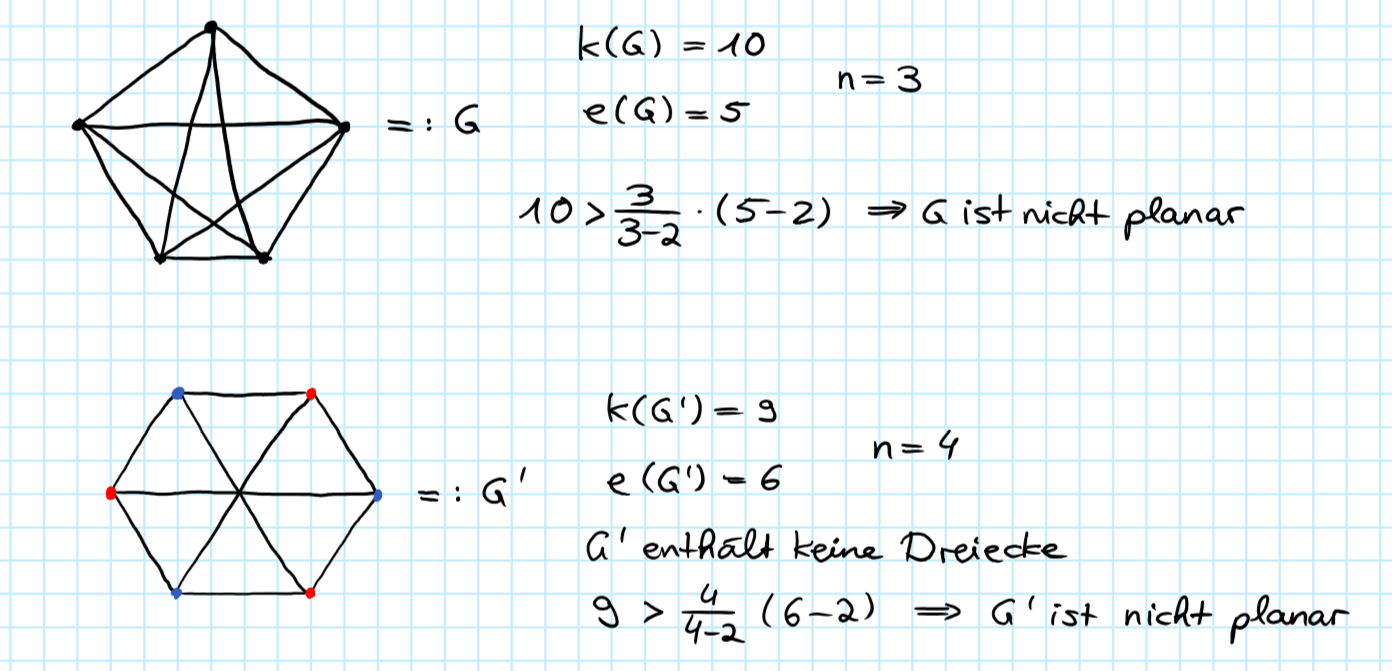 k(G) = 10
n = 3
=: G
e(G) = 5
10 > 3/(3-2) · (5-2) ⇒ G ist nicht planar
k(G') = 9
n = 4
=: G'
e(G') = 6
G' enthält keine Dreiecke
9 > 4/(4-2) (6-2) ⇒ G' ist nicht planar